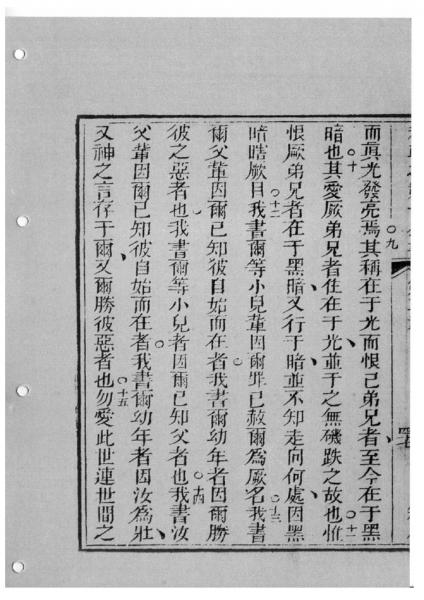 而眞光發亮焉〇九其稱在于光而恨己弟兄者至今在于黑
暗也〇十其愛厥弟兄者住在于光並于之無礙跌之故也〇十一惟
恨厥弟兄者在于黑暗又行于暗並不知走向何處因黑
暗瞎厥目〇十二我書爾等小兒輩因爾罪已赦爾為厥名〇十三我書
爾父輩因爾已知彼自始而在者我書爾幼年者因爾勝
彼之惡者也我書爾等小兒者因爾已知父者也〇十四我書汝
父輩因爾已知彼自始而在者我書爾幼年者因汝為壯
又神之言存于爾又爾勝彼惡者也〇十五勿愛此世連世間之